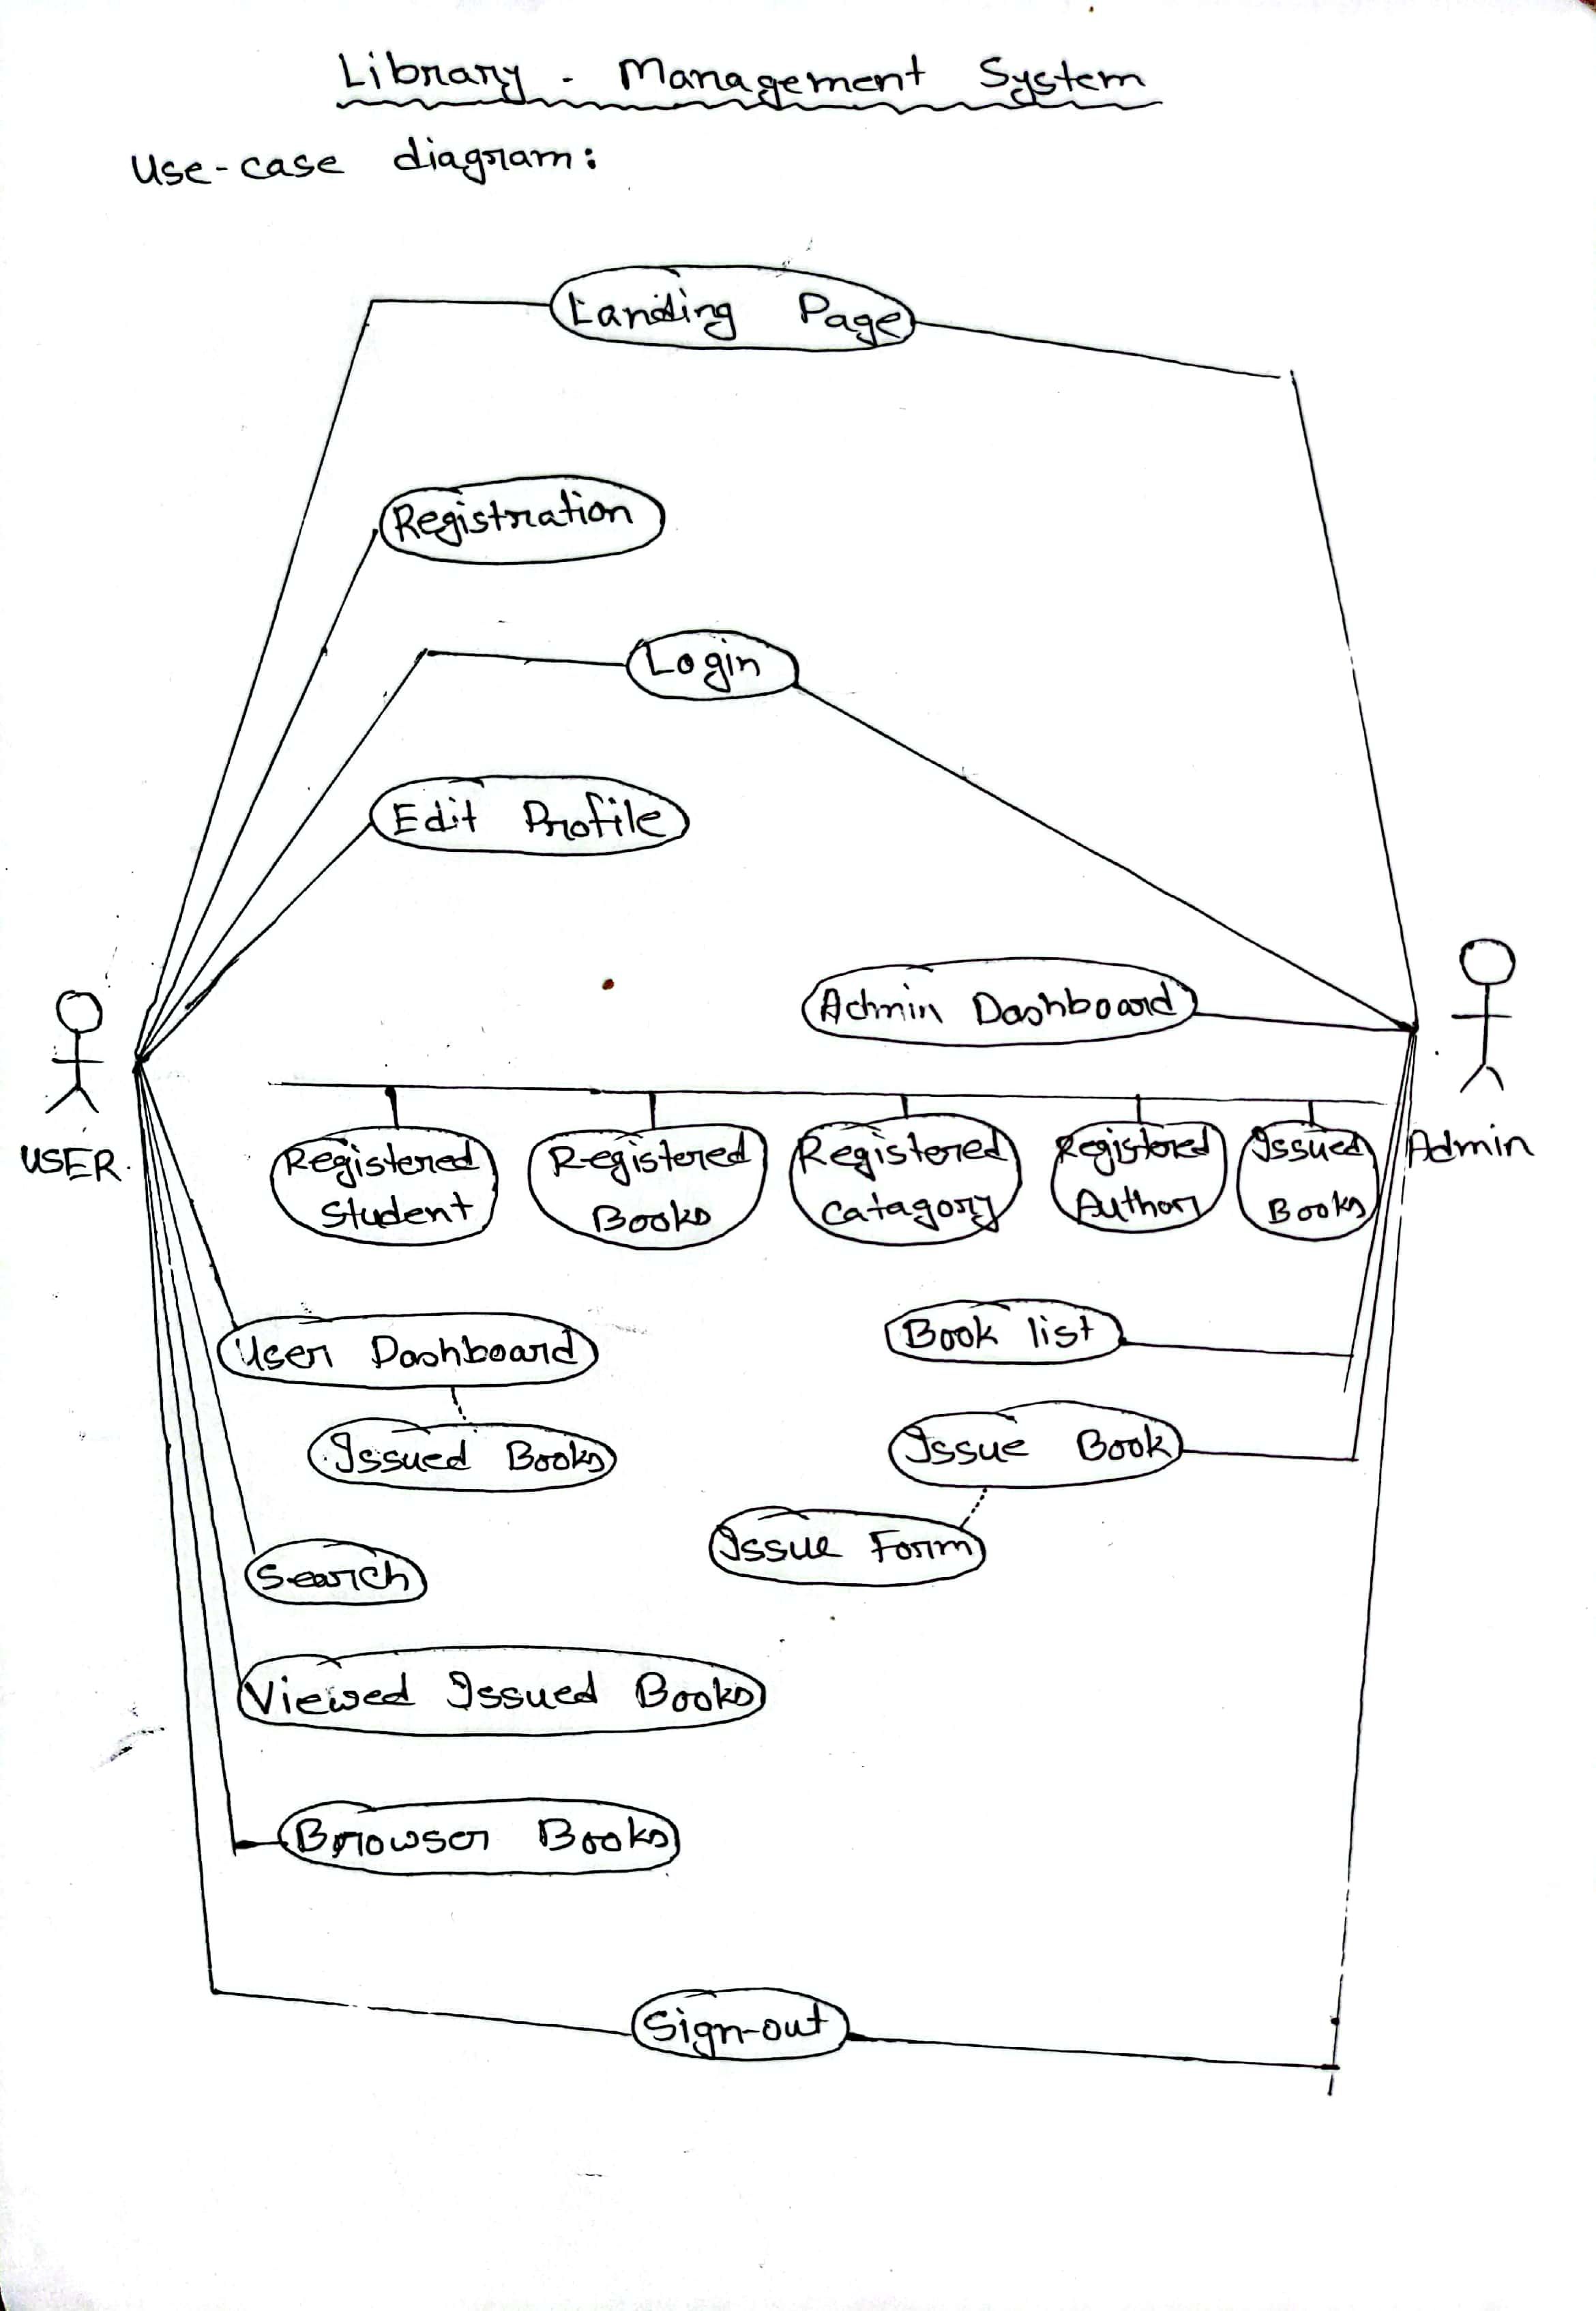 Library - Management System
Use-case diagram:
Landing Page
Registration
Login
Edit Profile
Admin Dashboard
USER
Admin
Registered Student
Registered Books
Registered Catagory
Registered Author
Issued Books
User Dashboard
Book list
Issued Books
Issue Book
Issue Form
Search
Viewed Issued Books
Browser Books
Sign-out